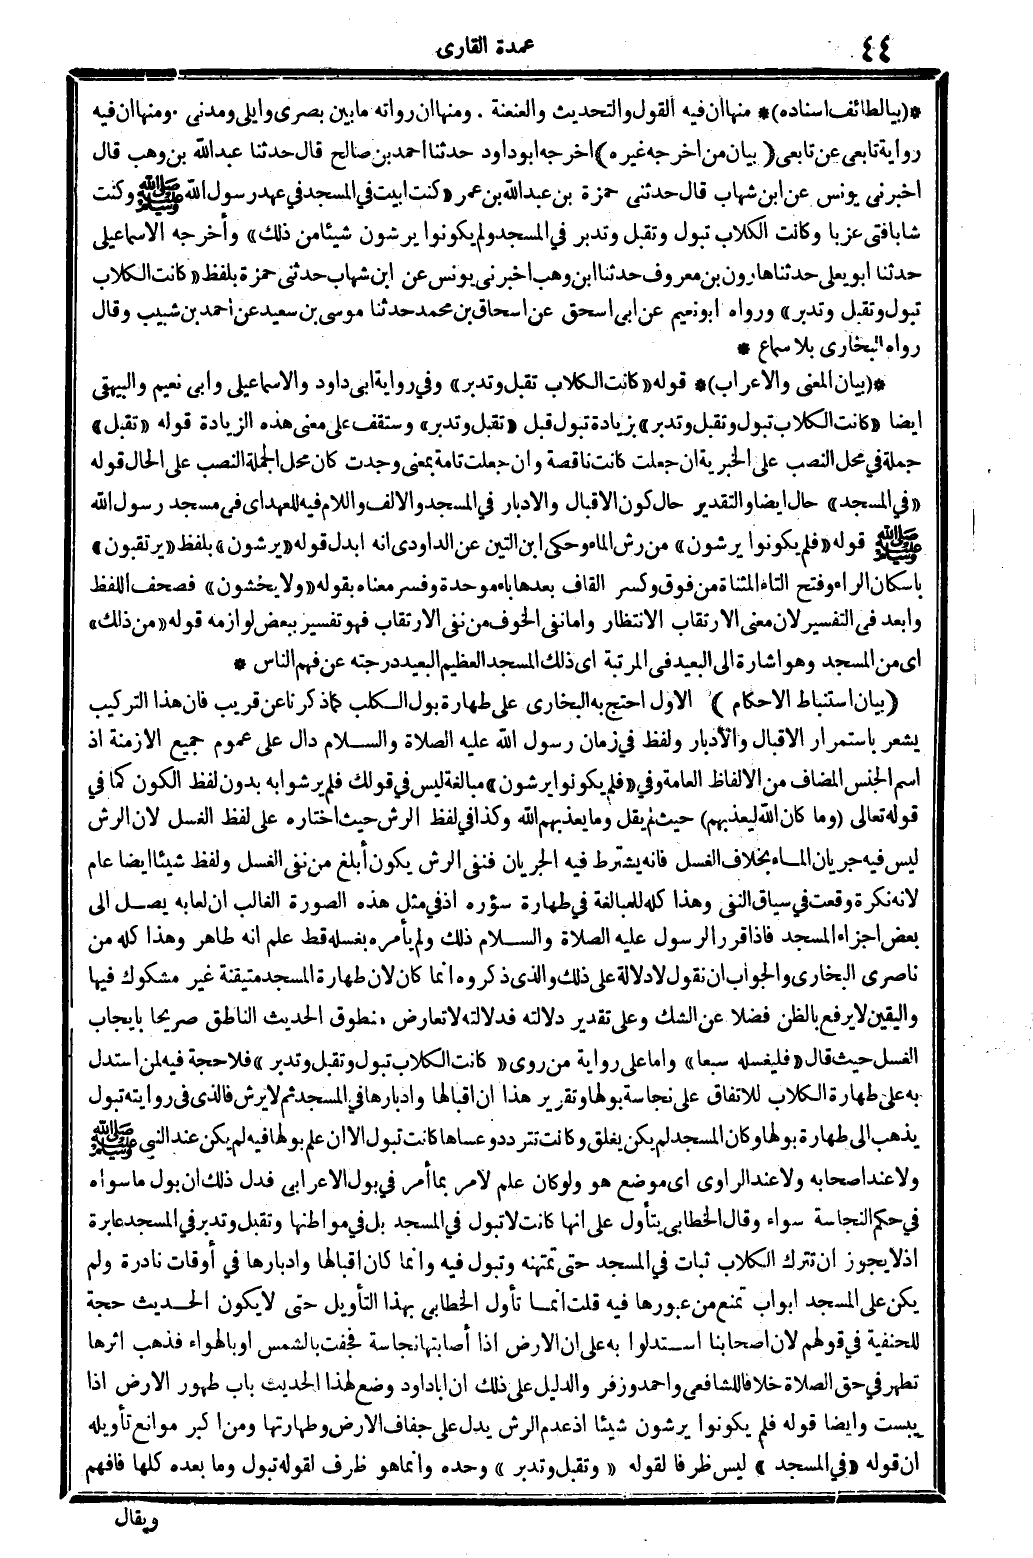 ٤٤
عمدة القارى
*(بيالطائف اسناده)* منها ان فيه القول والتحديث والعنعنة . ومنها ان رواته مابين بصرى وايلى ومدنى . ومنها ان فيه
رواية تابعى عن تابعى (بيان من اخرجه غيره) اخرجه ابوداود حدثنا احمد بن صالح قال حدثنا عبدالله بن وهب قال
اخبرنى يونس عن ابن شهاب قال حدثنى حمزة بن عبدالله بن عمر «كنت ابيت فى المسجد فى عهد رسول الله ﷺ وكنت
شابا فتى عزبا وكانت الكلاب تبول وتقبل وتدبر فى المسجد ولم يكونوا يرشون شيئا من ذلك» وأخرجه الاسماعيلى
حدثنا ابو يعلى حدثنا هارون بن معروف حدثنا ابن وهب اخبرنى يونس عن ابن شهاب حدثنى حمزة بلفظ «كانت الكلاب
تبول وتقبل وتدبر» ورواه ابونعيم عن ابى اسحق عن اسحاق بن محمد حدثنا موسى بن سعيد عن أحمد بن شبيب وقال
رواه البخارى بلا سماع *
*(بيان المعنى والاعراب)* قوله «كانت الكلاب تقبل وتدبر» وفى رواية ابى داود والاسماعيلى وابى نعيم والبيهقى
ايضا «كانت الكلاب تبول وتقبل وتدبر» بزيادة تبول قبل «تقبل وتدبر» وستقف على معنى هذه الزيادة قوله «تقبل»
جملة فى محل النصب على الخبرية ان جعلت كانت ناقصة وان جعلت تامة بمعنى وجدت كان محل الجملة النصب على الحال قوله
«فى المسجد» حال ايضا والتقدير حال كون الاقبال والادبار فى المسجد والالف واللام فيه للعهد اى فى مسجد رسول الله
ﷺ قوله «فلم يكونوا يرشون» من رش الماء وحكى ابن التين عن الداودى انه ابدل قوله «يرشون» بلفظ «يرتقبون»
باسكان الراء وفتح التاء المثناة من فوق وكسر القاف بعدها باء موحدة وفسر معناه بقوله «ولا يخشون» فصحف اللفظ
وابعد فى التفسير لان معنى الارتقاب الانتظار وامانفى الخوف من نفى الارتقاب فهو تفسير ببعض لوازمه قوله «من ذلك»
اى من المسجد وهو اشارة الى البعيد فى المرتبة اى ذلك المسجد العظيم البعيد درجته عن فهم الناس *
(بيان استنباط الاحكام) الاول احتج به البخارى على طهارة بول الكلب كما ذكرنا عن قريب فان هذا التركيب
يشعر باستمرار الاقبال والأدبار ولفظ فى زمان رسول الله عليه الصلاة والسلام دال على عموم جميع الازمنة اذ
اسم الجنس المضاف من الالفاظ العامة وفى «فلم يكونوا يرشون» مبالغة ليس فى قولك فلم يرشوا به بدون لفظ الكون كما فى
قوله تعالى (وما كان الله ليعذبهم) حيث لم يقل وما يعذبهم الله وكذا فى لفظ الرش حيث اختاره على لفظ الغسل لان الرش
ليس فيه جريان الماء بخلاف الغسل فانه يشترط فيه الجريان فنفى الرش يكون أبلغ من نفى الغسل ولفظ شيئا ايضا عام
لانه نكرة وقعت فى سياق النفى وهذا كله للمبالغة فى طهارة سؤره اذ فى مثل هذه الصورة الغالب ان لعابه يصل الى
بعض اجزاء المسجد فاذا قرر الرسول عليه الصلاة والسلام ذلك ولم يأمره بغسله قط علم انه طاهر وهذا كله من
ناصرى البخارى والجواب ان نقول لا دلالة على ذلك والذى ذكروه انما كان لان طهارة المسجد متيقنة غير مشكوك فيها
واليقين لا يرفع بالظن فضلا عن الشك وعلى تقدير دلالته فدلالته لا تعارض منطوق الحديث الناطق صريحا بايجاب
الغسل حيث قال «فليغسله سبعا» واما على رواية من روى «كانت الكلاب تبول وتقبل وتدبر» فلا حجة فيه لمن استدل
به على طهارة الكلاب للاتفاق على نجاسة بولها وتقرير هذا ان اقبالها وادبارها فى المسجد ثم لا يرش فالذى فى روايته تبول
يذهب الى طهارة بولها وكان المسجد لم يكن يغلق وكانت تتردد وعساها كانت تبول الا ان علم بولها فيه لم يكن عند النبى ﷺ
ولا عند اصحابه ولا عند الراوى اى موضع هو ولو كان علم لأمر بما أمر فى بول الاعرابى فدل ذلك ان بول ما سواه
فى حكم النجاسة سواء وقال الخطابى يتأول على انها كانت لا تبول فى المسجد بل فى مواطنها وتقبل وتدبر فى المسجد عابرة
اذ لا يجوز ان تترك الكلاب تبات فى المسجد حتى تمتهنه وتبول فيه وانما كان اقبالها وادبارها فى أوقات نادرة ولم
يكن على المسجد ابواب تمنع من عبورها فيه قلت انما تأول الخطابى بهذا التأويل حتى لا يكون الحديث حجة
للحنفية فى قولهم لان اصحابنا استدلوا به على ان الارض اذا أصابتها نجاسة فجفت بالشمس او بالهواء فذهب اثرها
تطهر فى حق الصلاة خلافا للشافعى واحمد وزفر والدليل على ذلك ان اباداود وضع لهذا الحديث باب طهور الارض اذا
يبست وايضا قوله فلم يكونوا يرشون شيئا اذ عدم الرش يدل على جفاف الارض وطهارتها ومن اكبر موانع تأويله
ان قوله «فى المسجد» ليس ظرفا لقوله «وتقبل وتدبر» وحده وانما هو ظرف لقوله تبول وما بعده كلها فافهم
ويقال